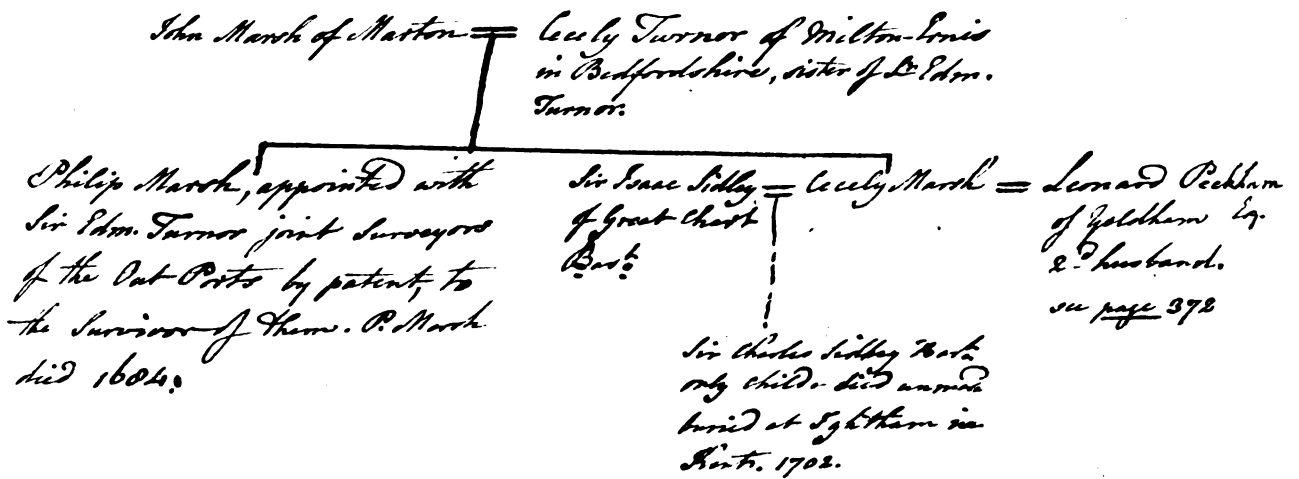 John Marsh of Marston = Cecely Turnor of Milton-Ernis
in Bedfordshire, sister of Sr. Edm.
Turnor.
Philip Marsh, appointed with
Sir Edm. Turnor joint Surveyors
of the Out Ports by patent, to
the Survivor of them. P. Marsh
died 1684.
Sir Isaac Sidley = Cecely Marsh = Leonard Peckham
of Great Chart
Bart.
of Yeldham Esq.
2d. husband.
see page 372
Sir Charles Sidley Bart.
only child - died unmard.
buried at Ightham in
Kent. 1702.